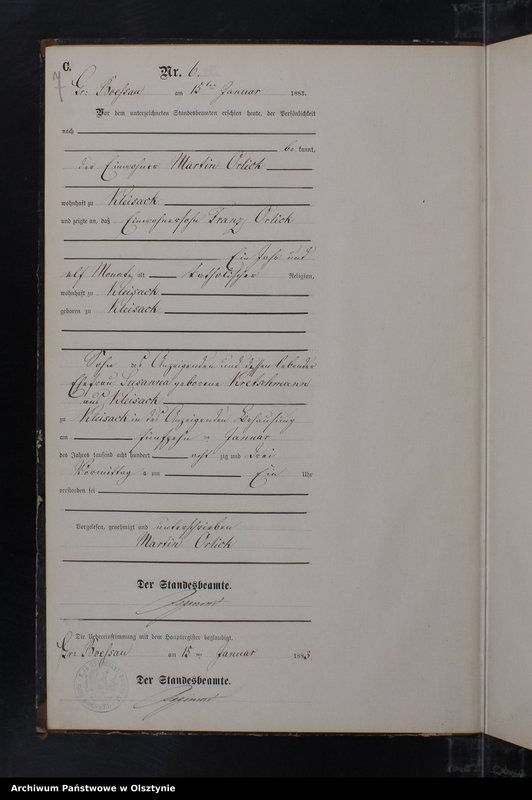 C.
7
Nr. 6.
Gr: Boessau am 15ten Januar 1883.
Vor dem unterzeichneten Standesbeamten erschien heute, der Persönlichkeit
nach
be kannt,
der Einwohner Martin Orlick
wohnhaft zu Kleisack
und zeigte an, daß Einwohnersohn Franz Orlick
Ein Jahr und
elf Monate alt katholischer Religion,
wohnhaft zu Kleisack
geboren zu Kleisack
Sohn des Anzeigenden und dessen lebender
Ehefrau Susanna geborene Kretschmann
aus Kleisack
zu Kleisack in des Anzeigenden Behausung
am fünfzehn ten Januar
des Jahres tausend acht hundert acht zig und drei
Vormittag s um Ein Uhr
verstorben sei
Vorgelesen, genehmigt und unterschrieben
Martin Orlick
Der Standesbeamte.
Die Uebereinstimmung mit dem Hauptregister beglaubigt.
Gr: Boessau am 15 ten Januar 1883.
Der Standesbeamte.
Archiwum Państwowe w Olsztynie